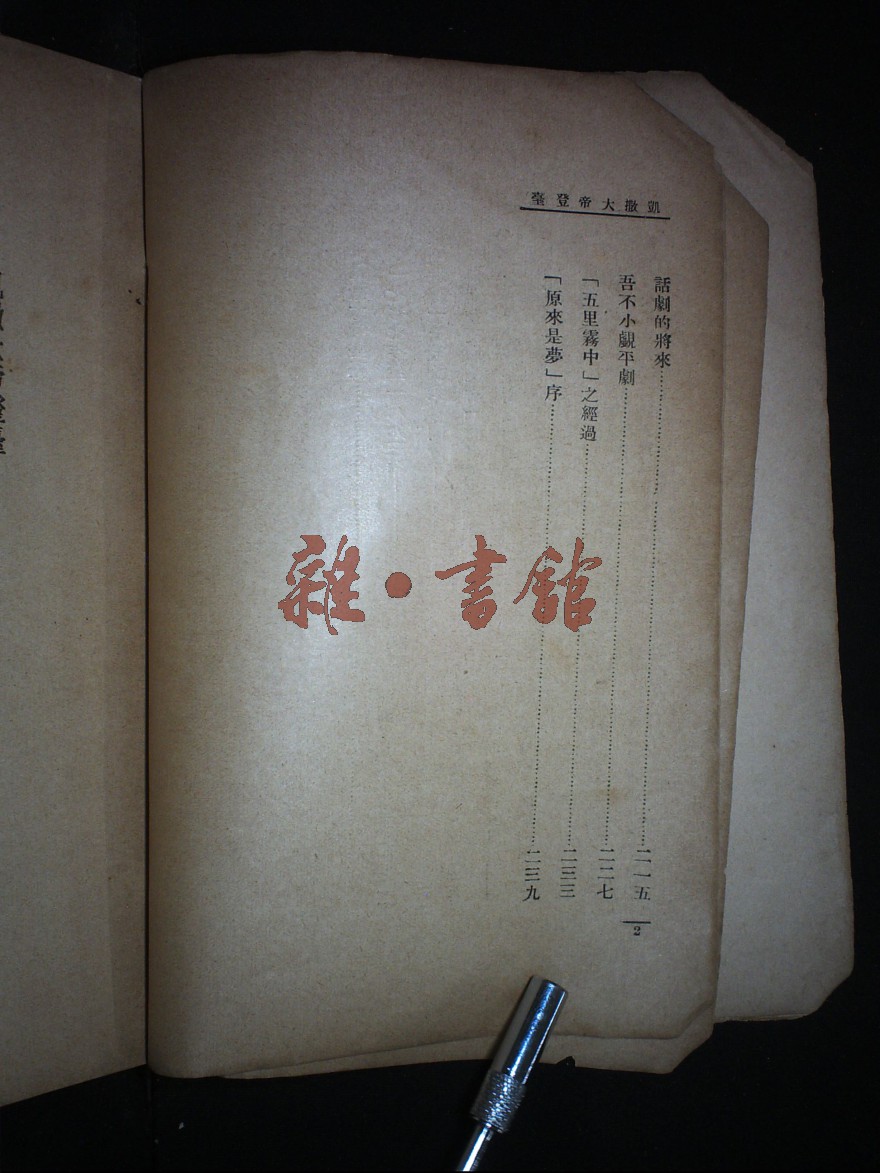 凱撒大帝登臺
話劇的將來……二一五
吾不小覷平劇……二二七
「五里霧中」之經過……二三三
「原來是夢」序……二三九
2
雜·書館